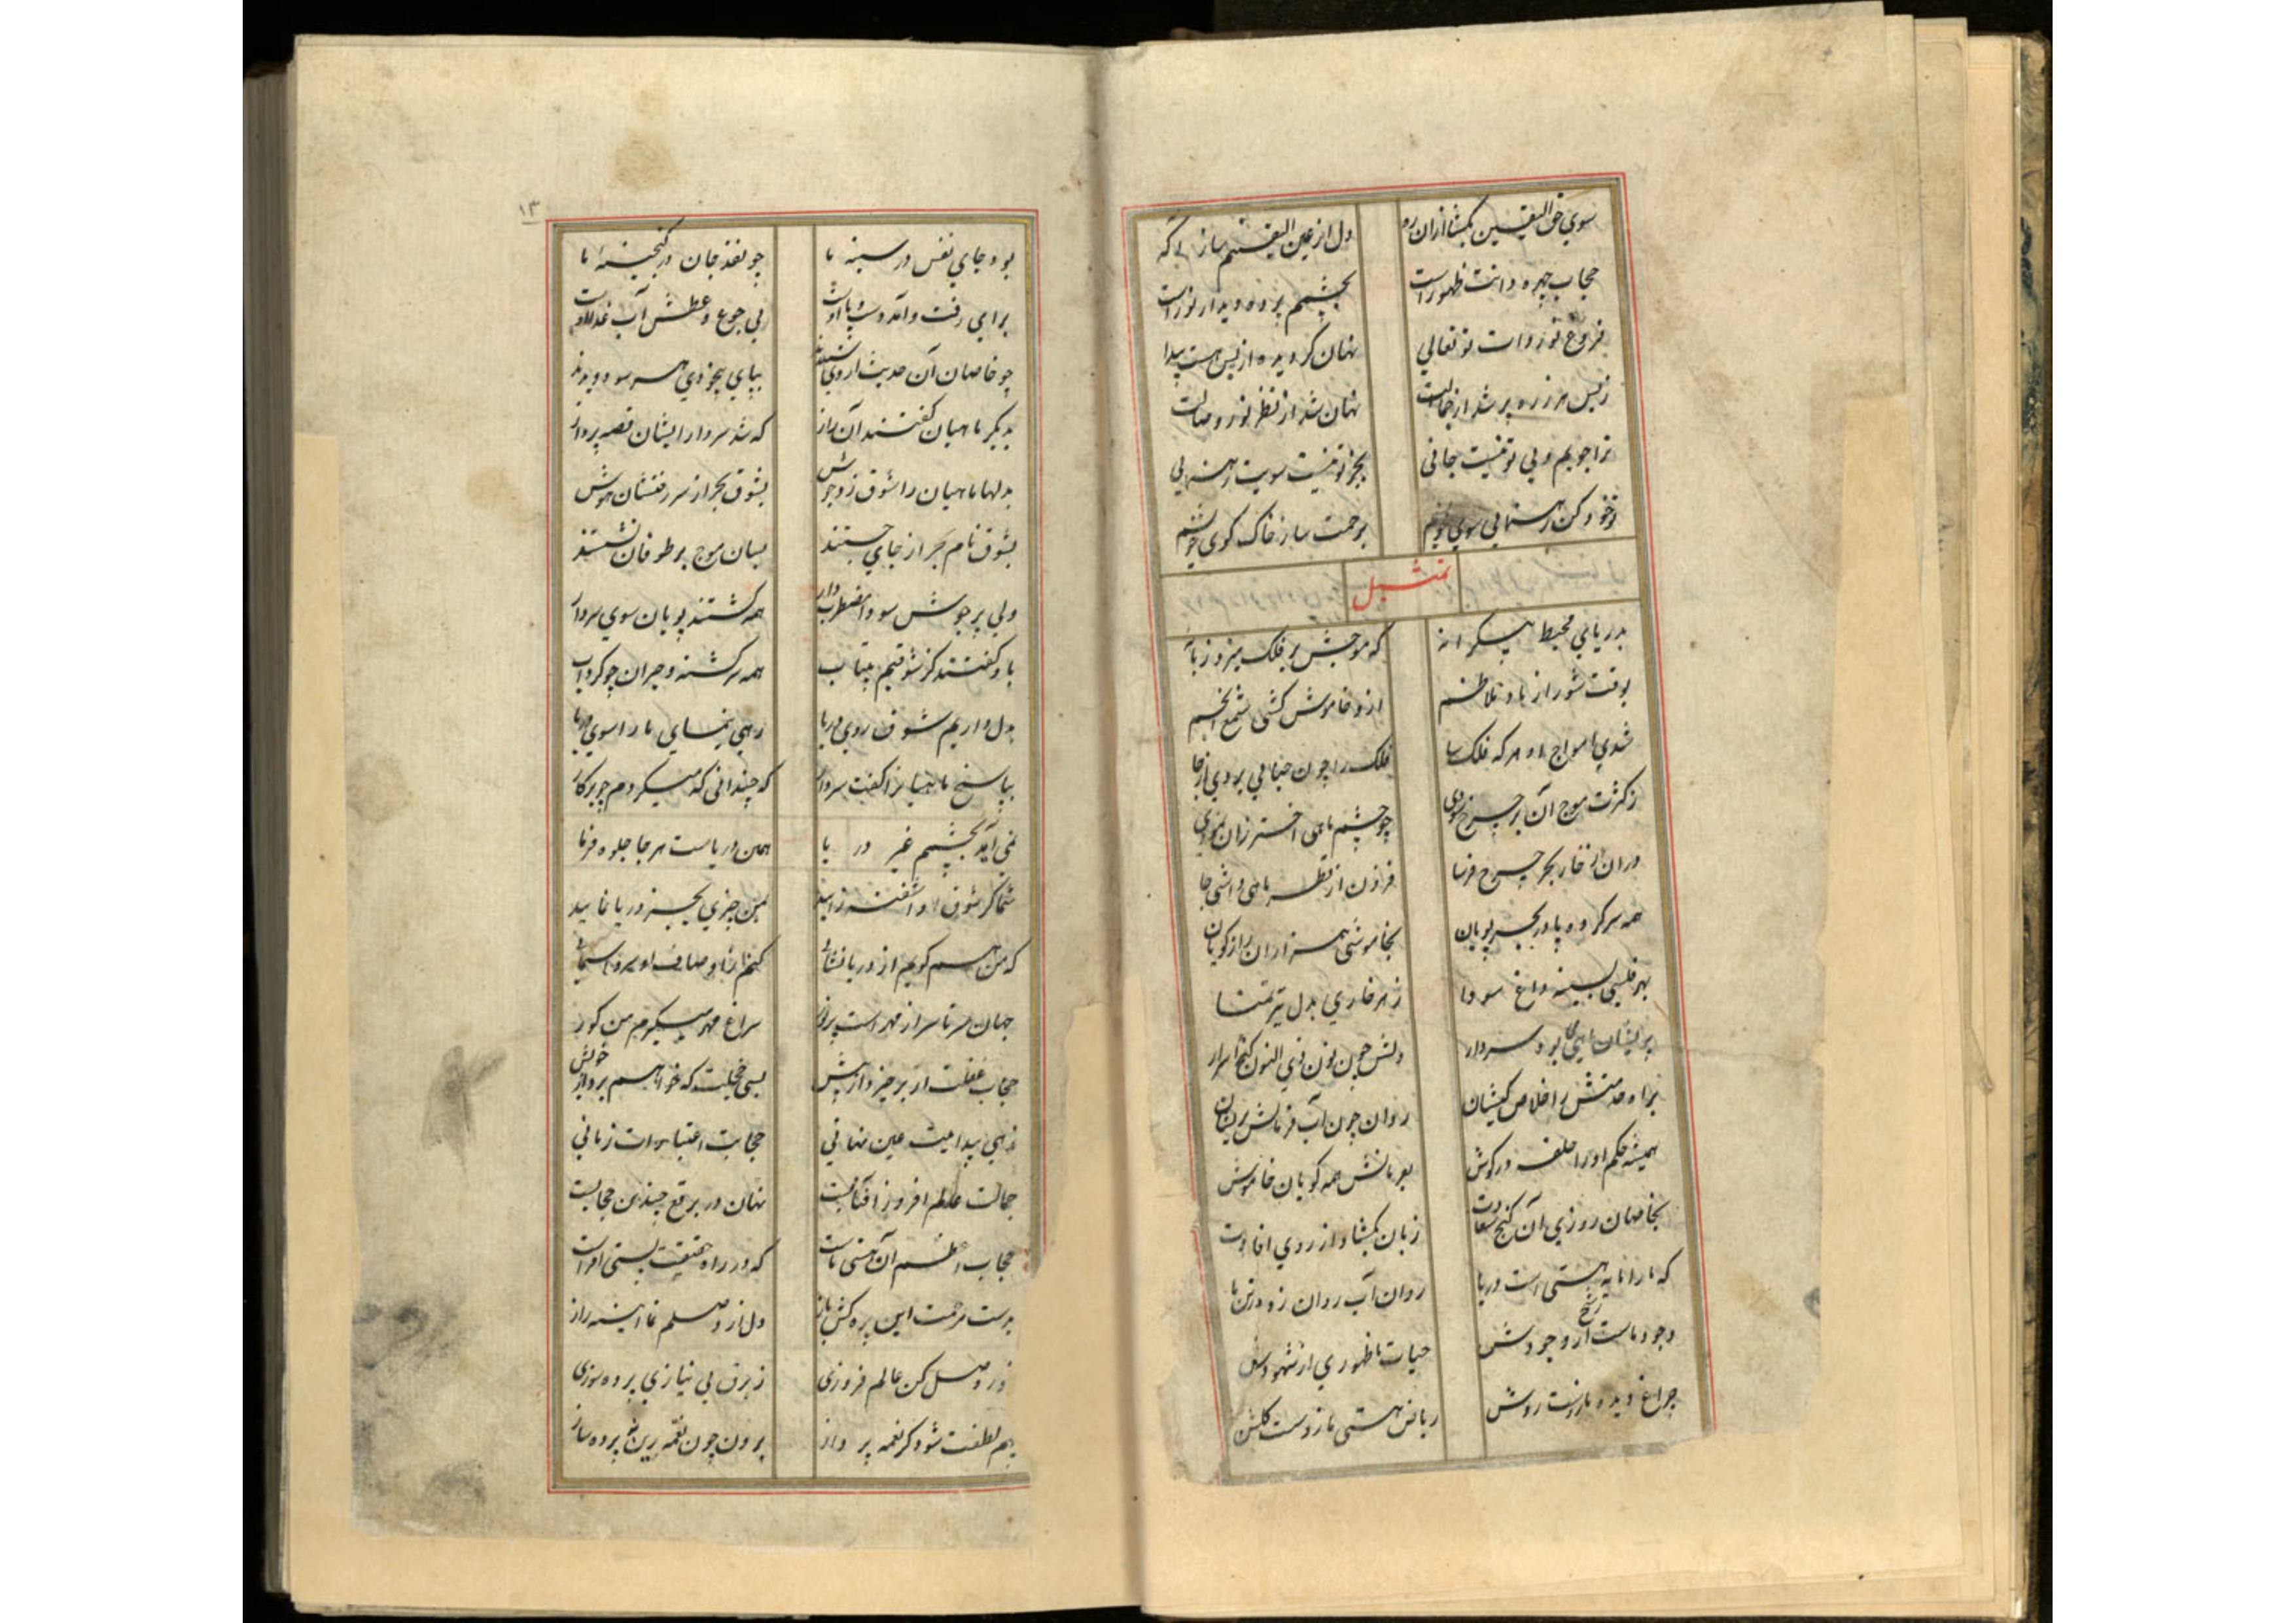 سوی حق الیقین بگشا ازان ره دل از عین الیقینم ساز آگه
حجاب چهره ذاتت ظهور است بچشمم پرده دیدار نور است
فروغ نور ذات تو تعالی نهان گردیده از بس هست پیدا
ز بس هر ذره پر شد از جمالت نهان شد از نظر نور وصالت
ترا جویم ولی تو نیست جائی بجز تو نیست سویت رهنمایی
تو خود کن رهنمایی سوی خویشم برحمت ساز خاک کوی خویشم
تمثیل
بدریای محیط بیکرانه که موجش بر فلک میزد زبانه
بوقت شور از باد تلاطم ازو خاموش گشتی شمع انجم
شدی امواج او هر که فلک سا فلک را چون حبابی بردی از جا
ز کثرت موج آن بر چرخ سودی چو چشم ماهی اختر زان نمودی
دران زخار بحر چرخ فرسا فزون از قطره ماهی داشتی جا
همه سر کرده پا در بحر پویان بخاموشی هزاران راز گویان
بهر فلسی بسینه داغ سودا ز هر خاری بدل تیر تمنا
بریشان ماهیی بود سردار دلش چون نون ذی النون گنج اسرار
براه خدمتش اخلاص کیشان روان چون آب فرمانش بریشان
همیشه حکم او را حلقه در گوش بفرمانش همه گویان خاموش
بخاصان روزی آن گنج سعادت زبان بگشاد از روی افادت
که ما را مایه هستی است دریا روان آب روان زو در تن ما
وجود ماست رشح از وجودش حیات ما ظهوری از شهودش
چراغ دیده ما زوست روشن ریاض هستی ما زوست گلشن
۱۳
بود جای نفس در سینه ما چو نقد جان در گنجینه ما
برای رفت و آمد دست و پا اوست پی جوع و عطش آب و غذا اوست
چو خاصان آن حدیث از وی شنیدند بپای بیخودی هر سو دویدند
بدیگر ماهیان گفتند آن راز که شد سردار ایشان قصه پرداز
بدلها ماهیان را شوق زد جوش بشوق بحر از سر رفتشان هوش
بشوق نام بحر از جای جستند بسان موج بر طوفان نشستند
دلی پر جوش سودا اضطراب وار همه گشتند پویان سوی سردار
باو گفتند کز شوقیم بیتاب همه سرگشته و حیران چو گرداب
بدل داریم شوق روی دریا رهی بنمای ما را سوی دریا
بپاسخ ماهیانرا گفت سردار که چندانی که میگردم چو پرکار
نمی آید بچشمم غیر دریا همین دریاست هر جا جلوه فرما
شما گر شوق او آشفته زاید بمن چیزی بجز دریا نمایید
که من هم گویم از دریا نشانی کنم ز اوصاف او
جهان سر تا سر از مهر است پر نور سراغ مهر میگیرم من کور
حجاب غفلت ار برخیزد از پیش بسی خجلت که خواهم برد از خویش
زهی پیداییت عین نهانی حجابت اعتبارات زمانی
جمالت عالم افروز آفتابیست نهان در برقع چندین حجابیست
حجاب اعظم آن هستی ماست که در راه حقیقت پستی افزاست
بدست مرحمت این پرده کش باز دل از وصلم نما آیینه راز
ز وصل کن عالم فروزی ز برق بی نیازی پرده سوزی
بهم لطفت شود گر نغمه پرداز برون چون نغمه زین نه پرده ساز